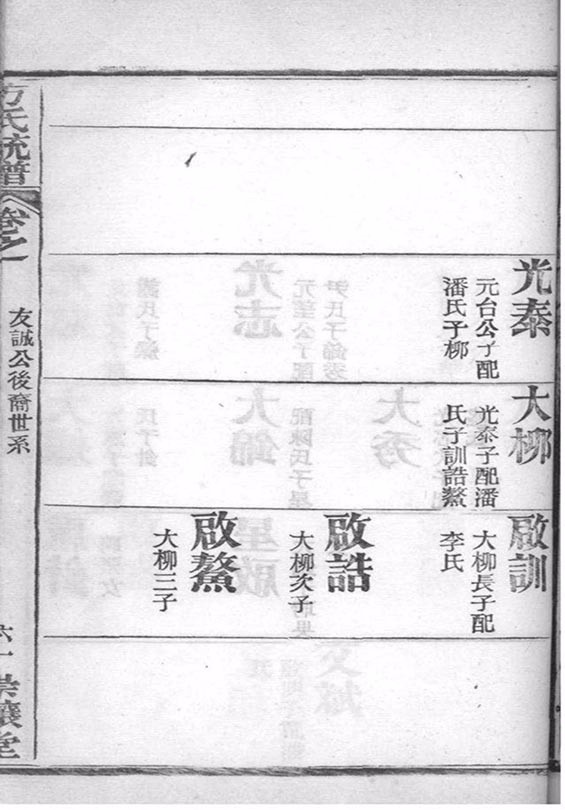 光泰
元台公子配
潘氏子柳
大柳
光泰子配潘
氏子訓誥鰲
啟訓
大柳長子配
李氏
啟誥
大柳次子
啟鰲
大柳三子
方氏統譜
卷之一
友誠公後裔世系
六一
堂